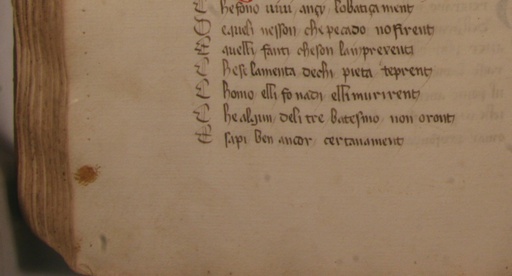 C he sono uiui ançi lo batiçament
E quel nesson che pecado no sirent
E quelli fanti che son la in presenti
C he se lamenta de chi pieta te prent
C homo elli so nadi elli murirent
C he algun deli tre batesmo non oront
E sapi ben ancor certanament